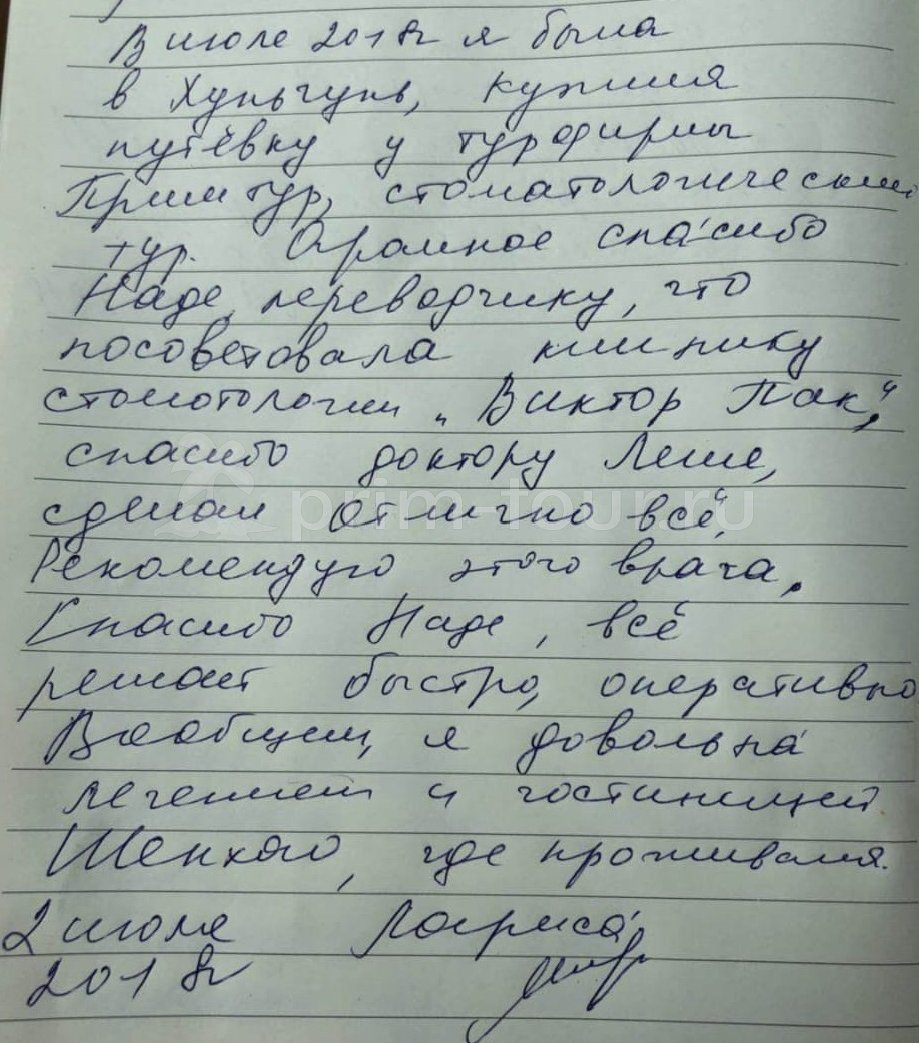 В июле 2018г я была
в Хуньчунь, купила
путёвку у турфирмы
Прим тур, стоматологический
тур. Огромное спасибо
Наде, переводчику, что
посоветовала клинику
стомотологии "Виктор Пак,"
спасибо доктору Леше,
сделал отлично всё,
prim-tour.ru
Рекомендую этого врача.
Спасибо Наде, всё
решает быстро, оперативно
Вообщем, я довольна
лечением и гостиницей
Шенхао, где проживала.
2 июля Лариса
2018г